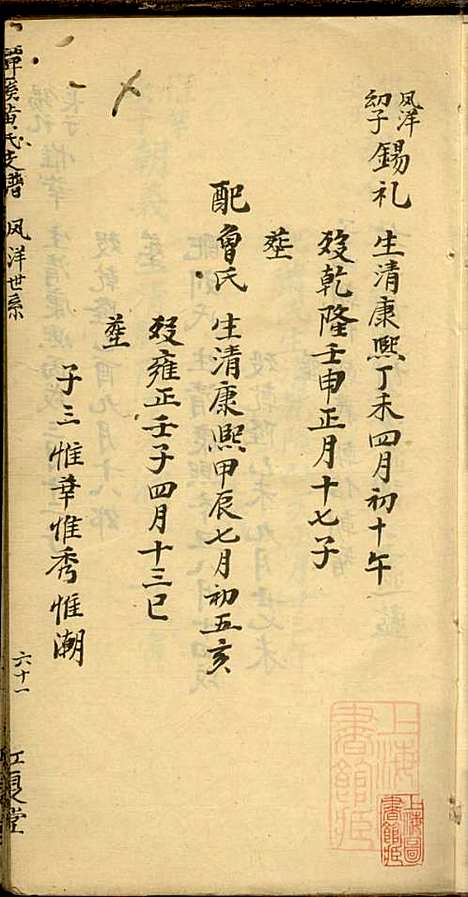 凤洋幼子 錫礼 生清康熙丁未四月初十午
歿乾隆壬申正月十七子
塟
配魯氏 生清康熙甲辰七月初五亥
歿雍正壬子四月十三巳
塟
子三惟幸惟秀惟潮
黄氏支譜 凤洋世系 六十一 江夏堂
上海圖書館藏